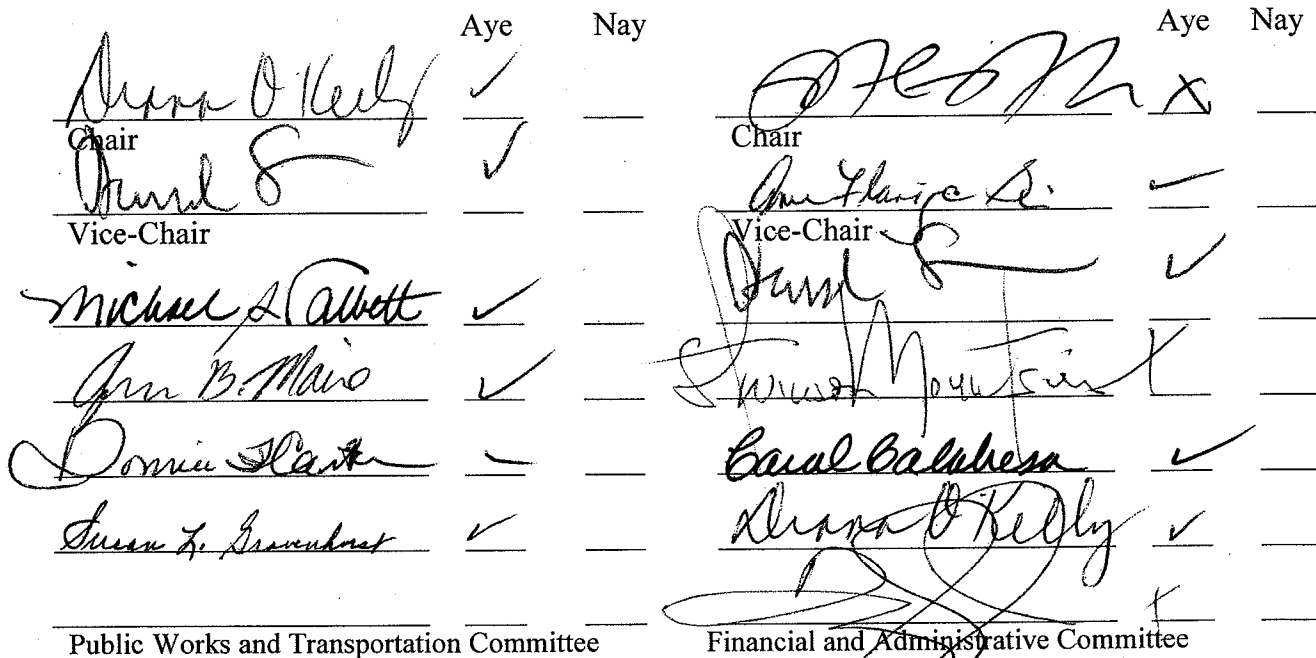 Aye Nay
Diana O'Kelly ✓
Chair
✓
Vice-Chair
Michael S Talbett ✓
Ann B. Maine ✓
Bonnie
Susan L. Gravenhorst ✓
Public Works and Transportation Committee
Aye Nay
X
Chair
✓
Vice-Chair
✓
Carol Calabresa ✓
Diana O'Kelly ✓
Financial and Administrative Committee